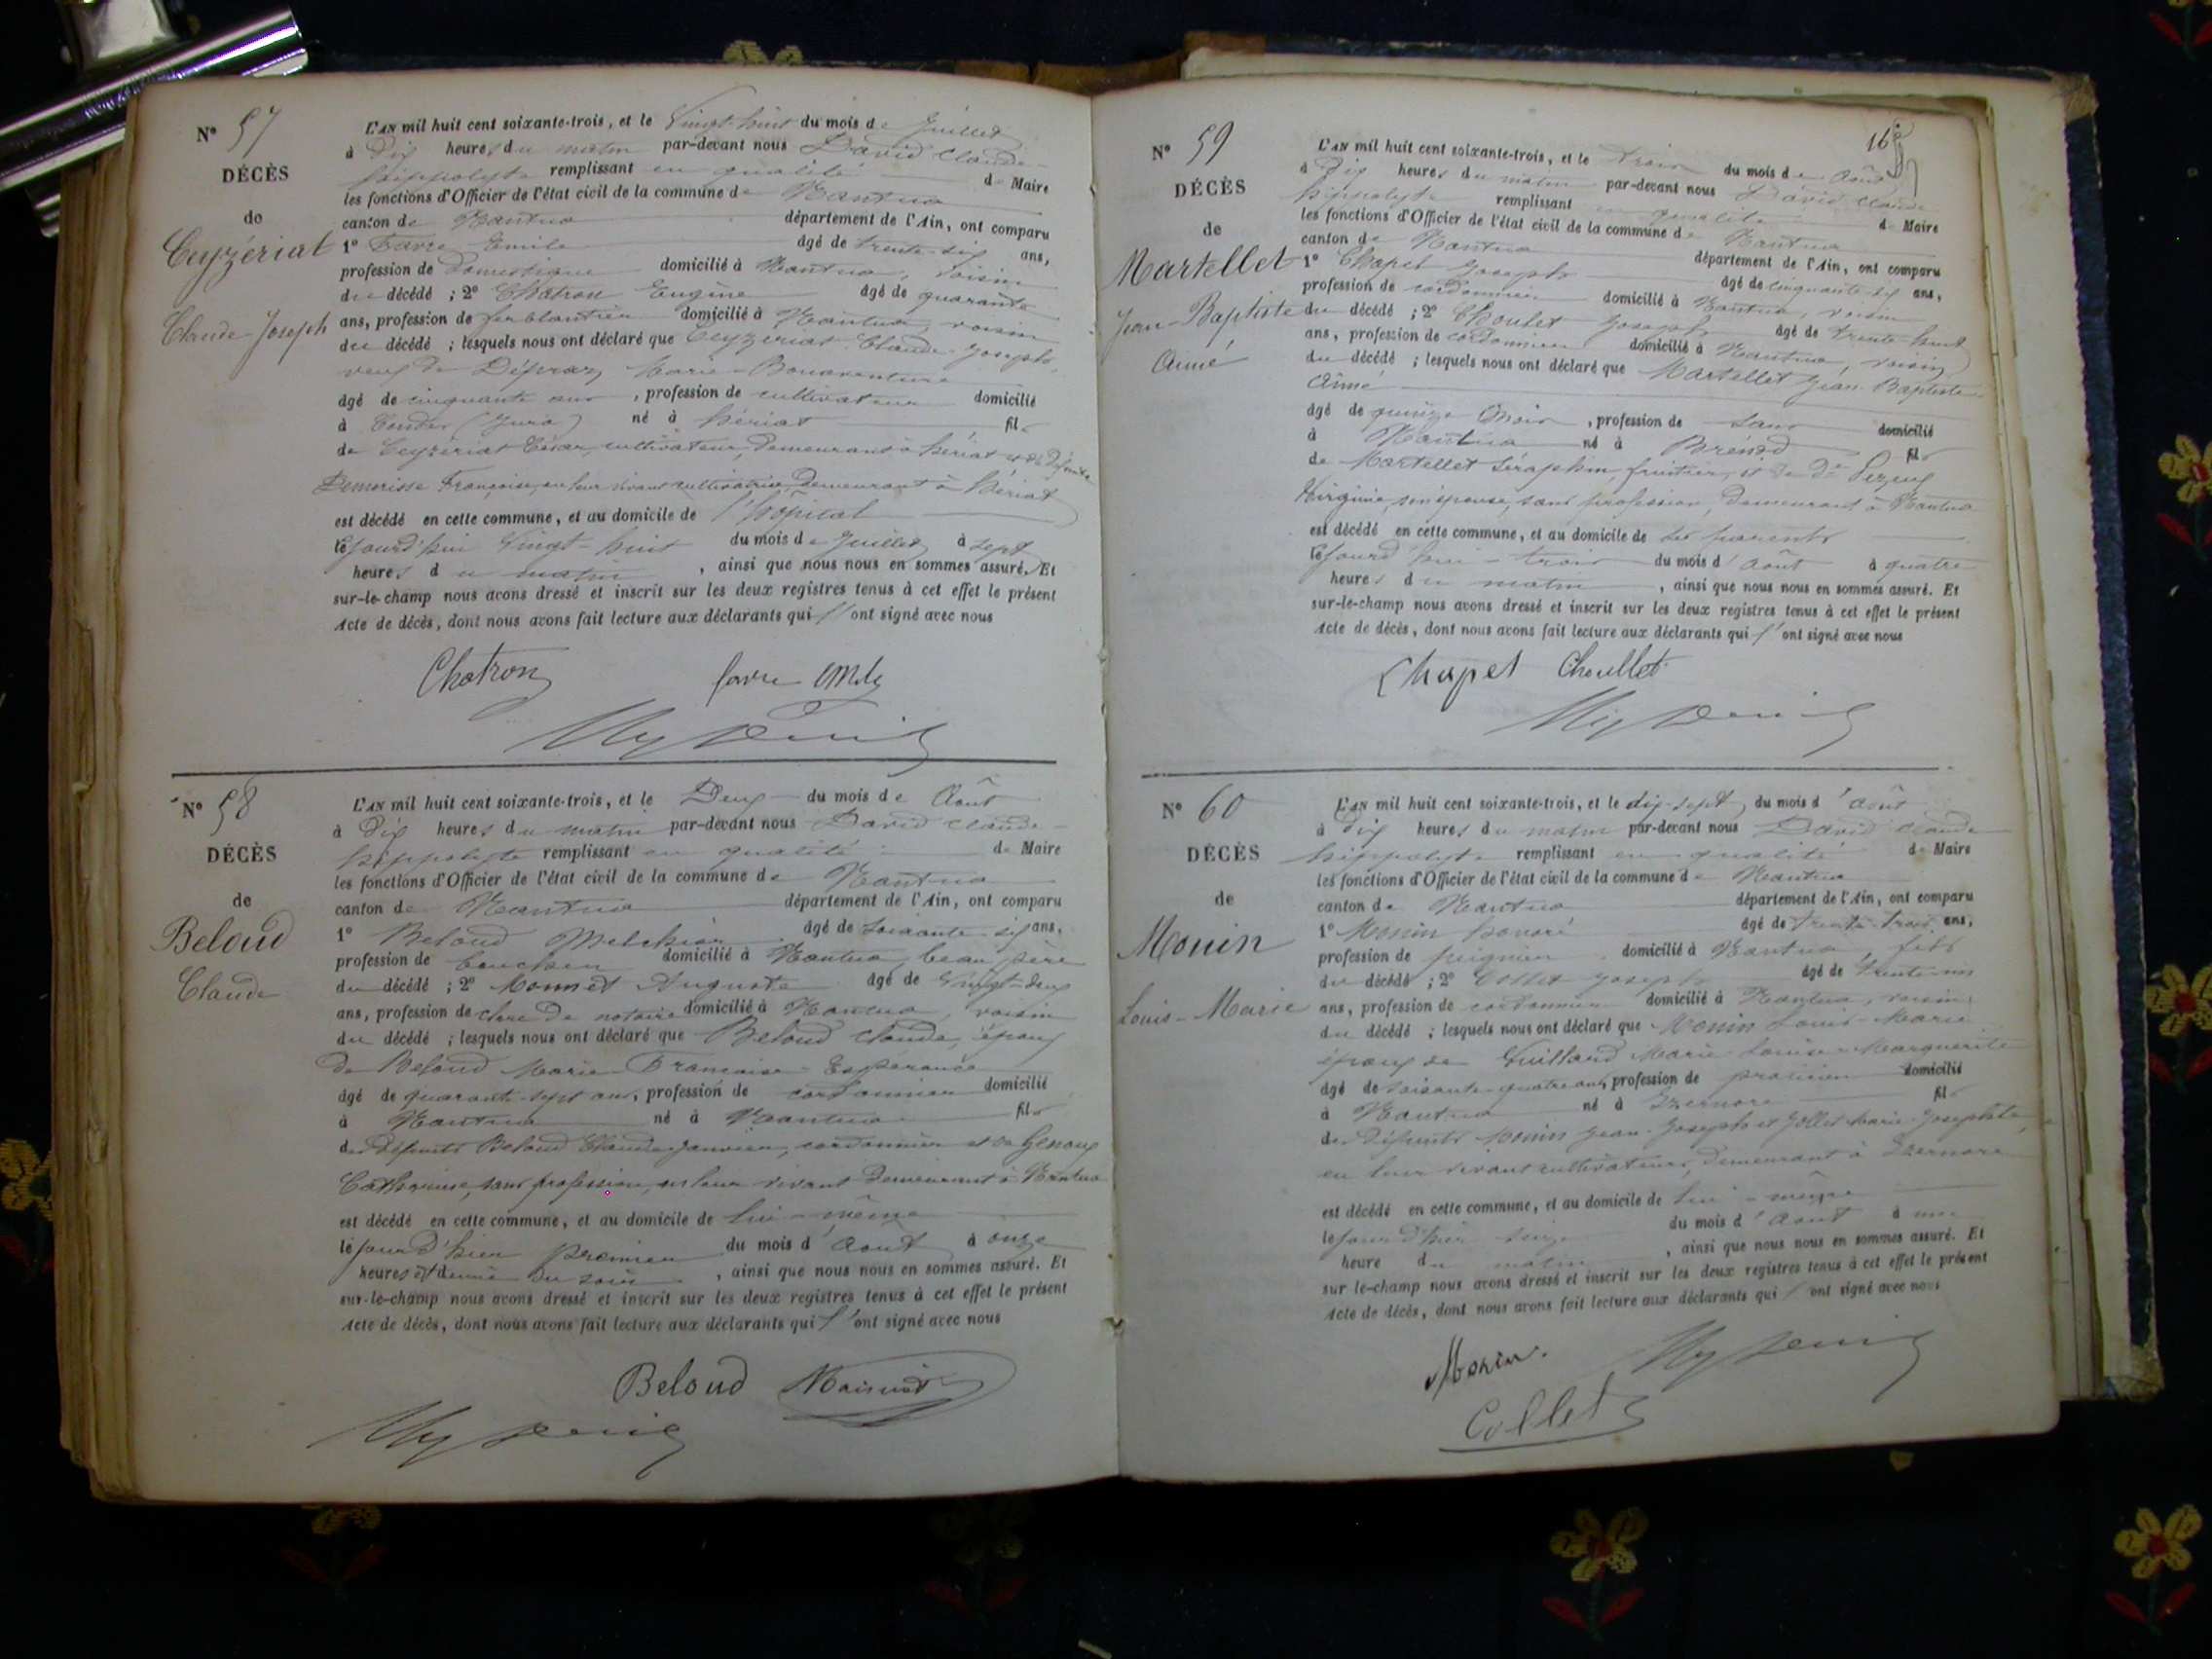 N° 57
DÉCÈS
de
Ceyzériat
Claude-Joseph
L'AN mil huit cent soixante-trois, et le Vingt-huit du mois de Juillet
à Dix heures du matin par-devant nous David Claude-
hippolyte remplissant en qualité de Maire
les fonctions d'Officier de l'état civil de la commune de Nantua
canton de Nantua département de l'Ain, ont comparu
1° Favre Emile âgé de trente-six ans,
profession de Domestique domicilié à Nantua, voisin
du décédé ; 2° Chatron Eugène âgé de quarante
ans, profession de ferblantier domicilié à Nantua, voisin
du décédé ; lesquels nous ont déclaré que Ceyzériat Claude-Joseph,
veuf de Marie-Bonaventure
âgé de cinquante ans, profession de cultivateur domicilié
à (Jura) né à hériat fils
de Ceyzériat César, cultivateur, demeurant à hériat et de défunte
Françoise, en leur vivant cultivatrice, demeurant à hériat
est décédé en cette commune, et au domicile de l'hôpital
le jourd'hui Vingt-huit du mois de Juillet à sept
heures du matin, ainsi que nous nous en sommes assuré. Et
sur-le-champ nous avons dressé et inscrit sur les deux registres tenus à cet effet le présent
Acte de décès, dont nous avons fait lecture aux déclarants qui l'ont signé avec nous
Chatron favre Emile
N° 58
DÉCÈS
de
Beloud
Claude
L'AN mil huit cent soixante-trois, et le Deux du mois de Août
à Dix heures du matin par-devant nous David Claude-
hippolyte remplissant en qualité de Maire
les fonctions d'Officier de l'état civil de la commune de Nantua
canton de Nantua département de l'Ain, ont comparu
1° Beloud Melchior âgé de soixante-six ans,
profession de domicilié à Nantua, beau-père
du décédé ; 2° Auguste âgé de Vingt-deux
ans, profession de clerc de notaire domicilié à Nantua, voisin
du décédé ; lesquels nous ont déclaré que Beloud Claude, époux
de Beloud Marie-Françoise-Espérance
âgé de quarante-sept ans, profession de cordonnier domicilié
à Nantua né à Nantua fils
des défunts Beloud Claude-Janvier, cordonnier et de Genoux
Catherine, sans profession, en leur vivant demeurant à Nantua
est décédé en cette commune, et au domicile de lui-même
le jour d'hier premier du mois d'Août à onze
heures et demie du soir, ainsi que nous nous en sommes assuré. Et
sur-le-champ nous avons dressé et inscrit sur les deux registres tenus à cet effet le présent
Acte de décès, dont nous avons fait lecture aux déclarants qui l'ont signé avec nous
Beloud
N° 59
DÉCÈS
de
Martellet
Jean-Baptiste
Aimé
L'AN mil huit cent soixante-trois, et le trois du mois de Août
à Dix heures du matin par-devant nous David Claude
hippolyte remplissant en qualité de Maire
les fonctions d'Officier de l'état civil de la commune de Nantua
canton de Nantua département de l'Ain, ont comparu
1° Chapel Joseph âgé de cinquante-six ans,
profession de cordonnier domicilié à Nantua, voisin
du décédé ; 2° Choulet Joseph âgé de trente-huit
ans, profession de cordonnier domicilié à Nantua, voisin
du décédé ; lesquels nous ont déclaré que Martellet Jean-Baptiste-
Aimé
âgé de quinze mois, profession de sans domicilié
à Nantua né à Brénod fils
de Martellet Séraphin, fruitier, et de
Virginie, son épouse, sans profession, demeurant à Nantua
est décédé en cette commune, et au domicile de ses parents
le jourd'hui trois du mois d'Août à quatre
heures du matin, ainsi que nous nous en sommes assuré. Et
sur-le-champ nous avons dressé et inscrit sur les deux registres tenus à cet effet le présent
Acte de décès, dont nous avons fait lecture aux déclarants qui l'ont signé avec nous
Chapel Choullet
N° 60
DÉCÈS
de
Monin
Louis-Marie
L'AN mil huit cent soixante-trois, et le dix-sept du mois d'Août
à Dix heures du matin par-devant nous David Claude
hippolyte remplissant en qualité de Maire
les fonctions d'Officier de l'état civil de la commune de Nantua
canton de Nantua département de l'Ain, ont comparu
1° Monin honoré âgé de trente-trois ans,
profession de peignier domicilié à Nantua, fils
du décédé ; 2° Collet Joseph âgé de trente-un
ans, profession de cordonnier domicilié à Nantua, voisin
du décédé ; lesquels nous ont déclaré que Monin Louis-Marie
époux de Guillaud Marie-Louise-Marguerite
âgé de soixante-quatre ans, profession de praticien domicilié
à Nantua né à Izernore fils
des défunts Monin Jean-Joseph et Jollet Marie-Josephte,
en leur vivant cultivateurs, demeurant à Izernore
est décédé en cette commune, et au domicile de lui-même
le jour d'hier seize du mois d'Août à une
heure du matin, ainsi que nous nous en sommes assuré. Et
sur-le-champ nous avons dressé et inscrit sur les deux registres tenus à cet effet le présent
Acte de décès, dont nous avons fait lecture aux déclarants qui l'ont signé avec nous
Monin
Collet